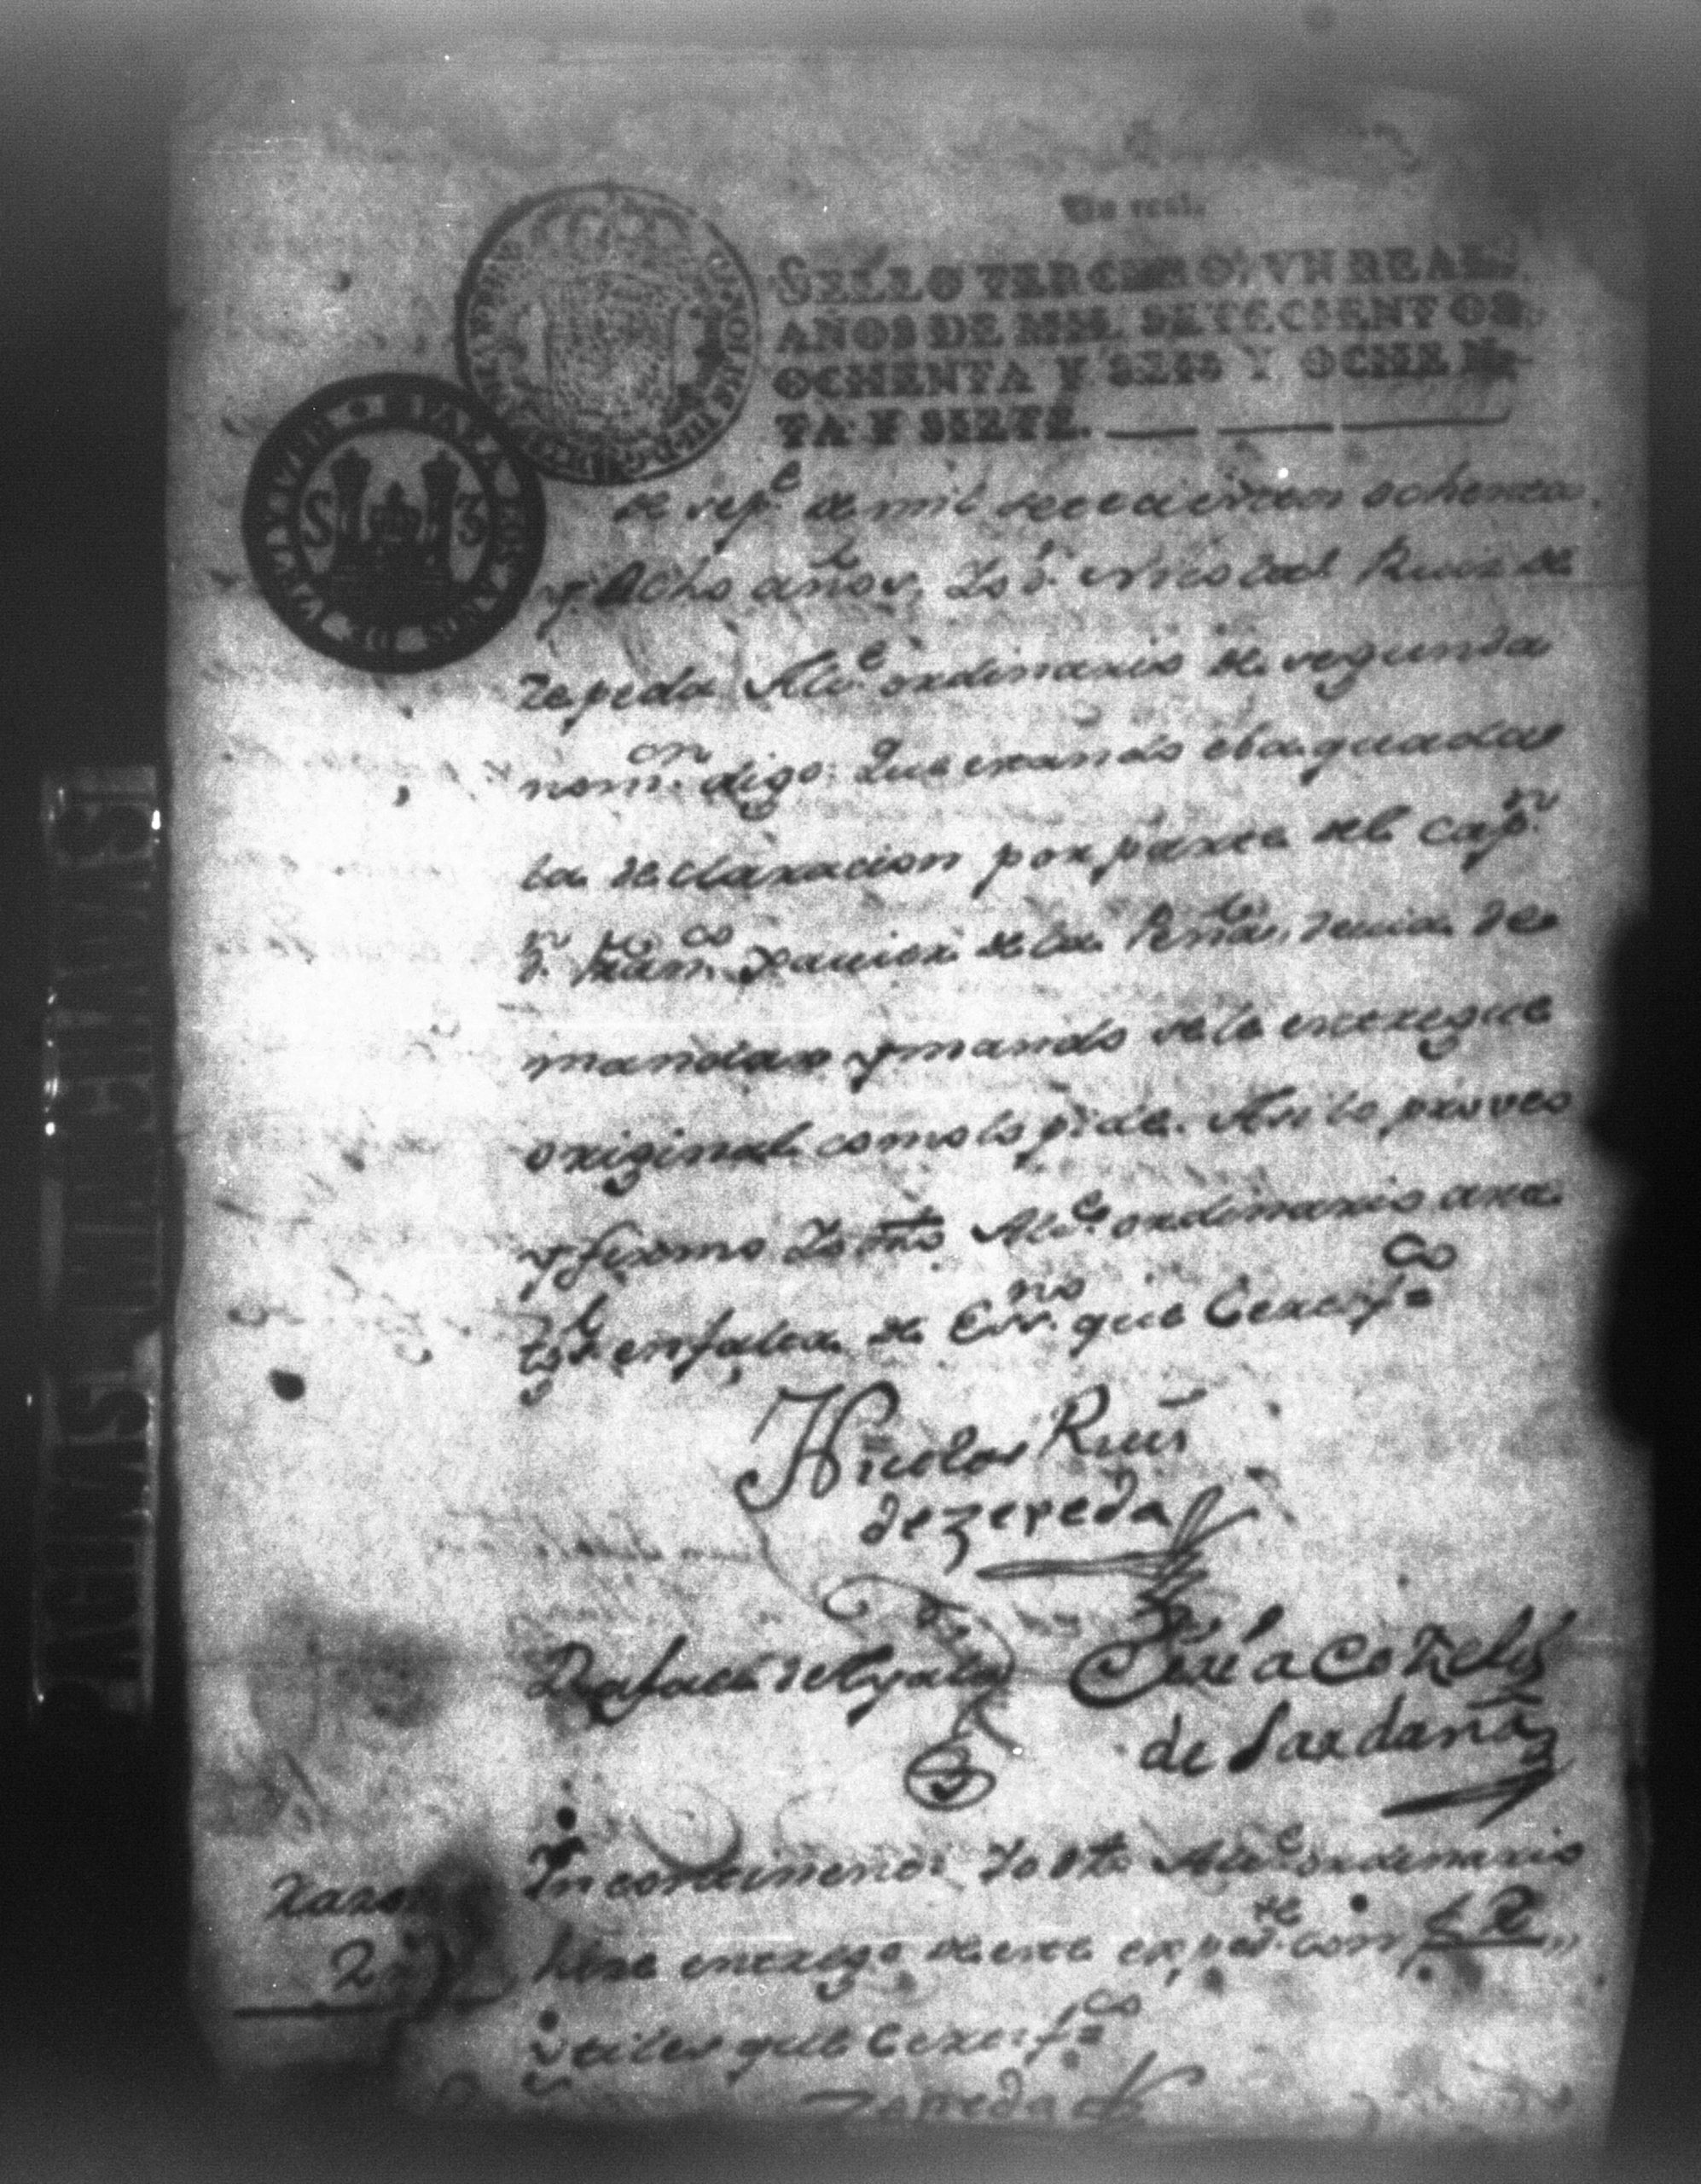 Un real.
SELLO TERCERO, VN REAL,
AÑOS DE MIL SETECIENTOS
OCHENTA Y SEIS Y OCHEN-
TA Y SIETE.
VALA
S 3
de sep.e de mil setecientos ochenta
y Ocho años. Yo d.n Nicolas Ruis de
Zepeda Alc.e ordinario de segunda
nom.on digo: Que estando ebaquadas
la declaracion por parte del cap.n
d.n Fran.co Xavier de la Peña, devia de
mandar y mando se le entregue
original como lo pide. Asi lo proveo
y firmo Yo dho Alc.e ordinario ante
tgos enfalta de Ess.no que Certifco=
Nicolas Ruis
de zepeda
Rafael de Ayala
José a co Zelis
de Sardaña
Incontinenti Yo dho Alc.e ordinario
hise entrego de este exped.te con
utiles que Certifco=
Zepeda
PAGINAS MUTILADAS